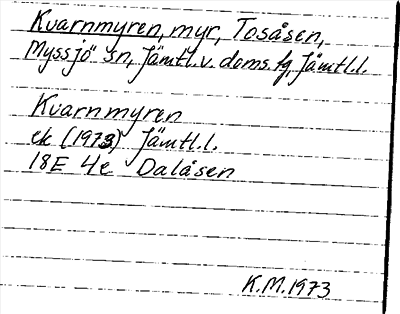 Kvarnmyren, myr, Tosåsen,
Myssjö sn, Jämtl.v. doms. fg, Jämtl.l.
Kvarnmyren
ek (1973) Jämtl.l.
18E 4e Dalåsen
K.M. 1973